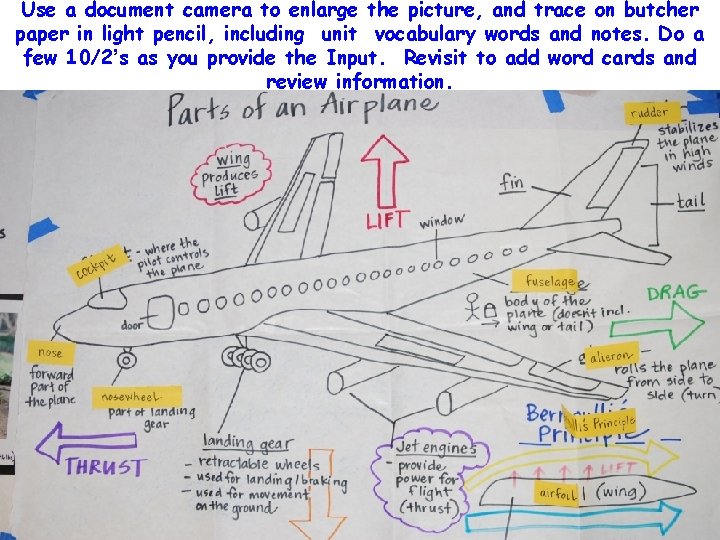 Use a document camera to enlarge the picture, and trace on butcher
paper in light pencil, including unit vocabulary words and notes. Do a
few 10/2’s as you provide the Input. Revisit to add word cards and
review information.
Parts of an Airplane
rudder
stabilizes
the plane
in high
winds
wing
produces
lift
LIFT
fin
tail
window
cockpit
- where the
pilot controls
the plane
fuselage
body of the
plane (doesn't incl.
wing or tail)
DRAG
door
nose
forward
part of
the plane
nosewheel
part of landing
gear
aileron
rolls the plane
from side to
side (turn)
THRUST
landing gear
- retractable wheels
- used for landing/braking
- used for movement
on the ground
Jet engines
- provide
power for
flight
(thrust)
Principle
Principle
LIFT
airfoil
(wing)